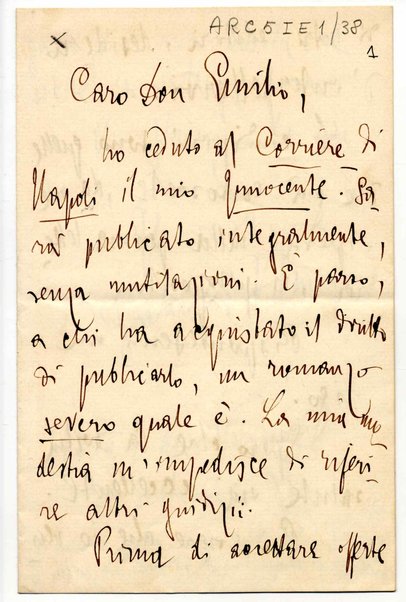 ARC5IE1/38
1
Caro Don Emilio,
ho ceduto al Corriere di
Napoli il mio Innocente. Sa
rà publicato integralmente,
senza mutilazioni. È parso,
a chi ha acquistato il diritto
di publicarlo, un romanzo
severo quale è. La mia mo
destia m'impedisce di riferi
re altri giudizii.
Prima di accettare offerte